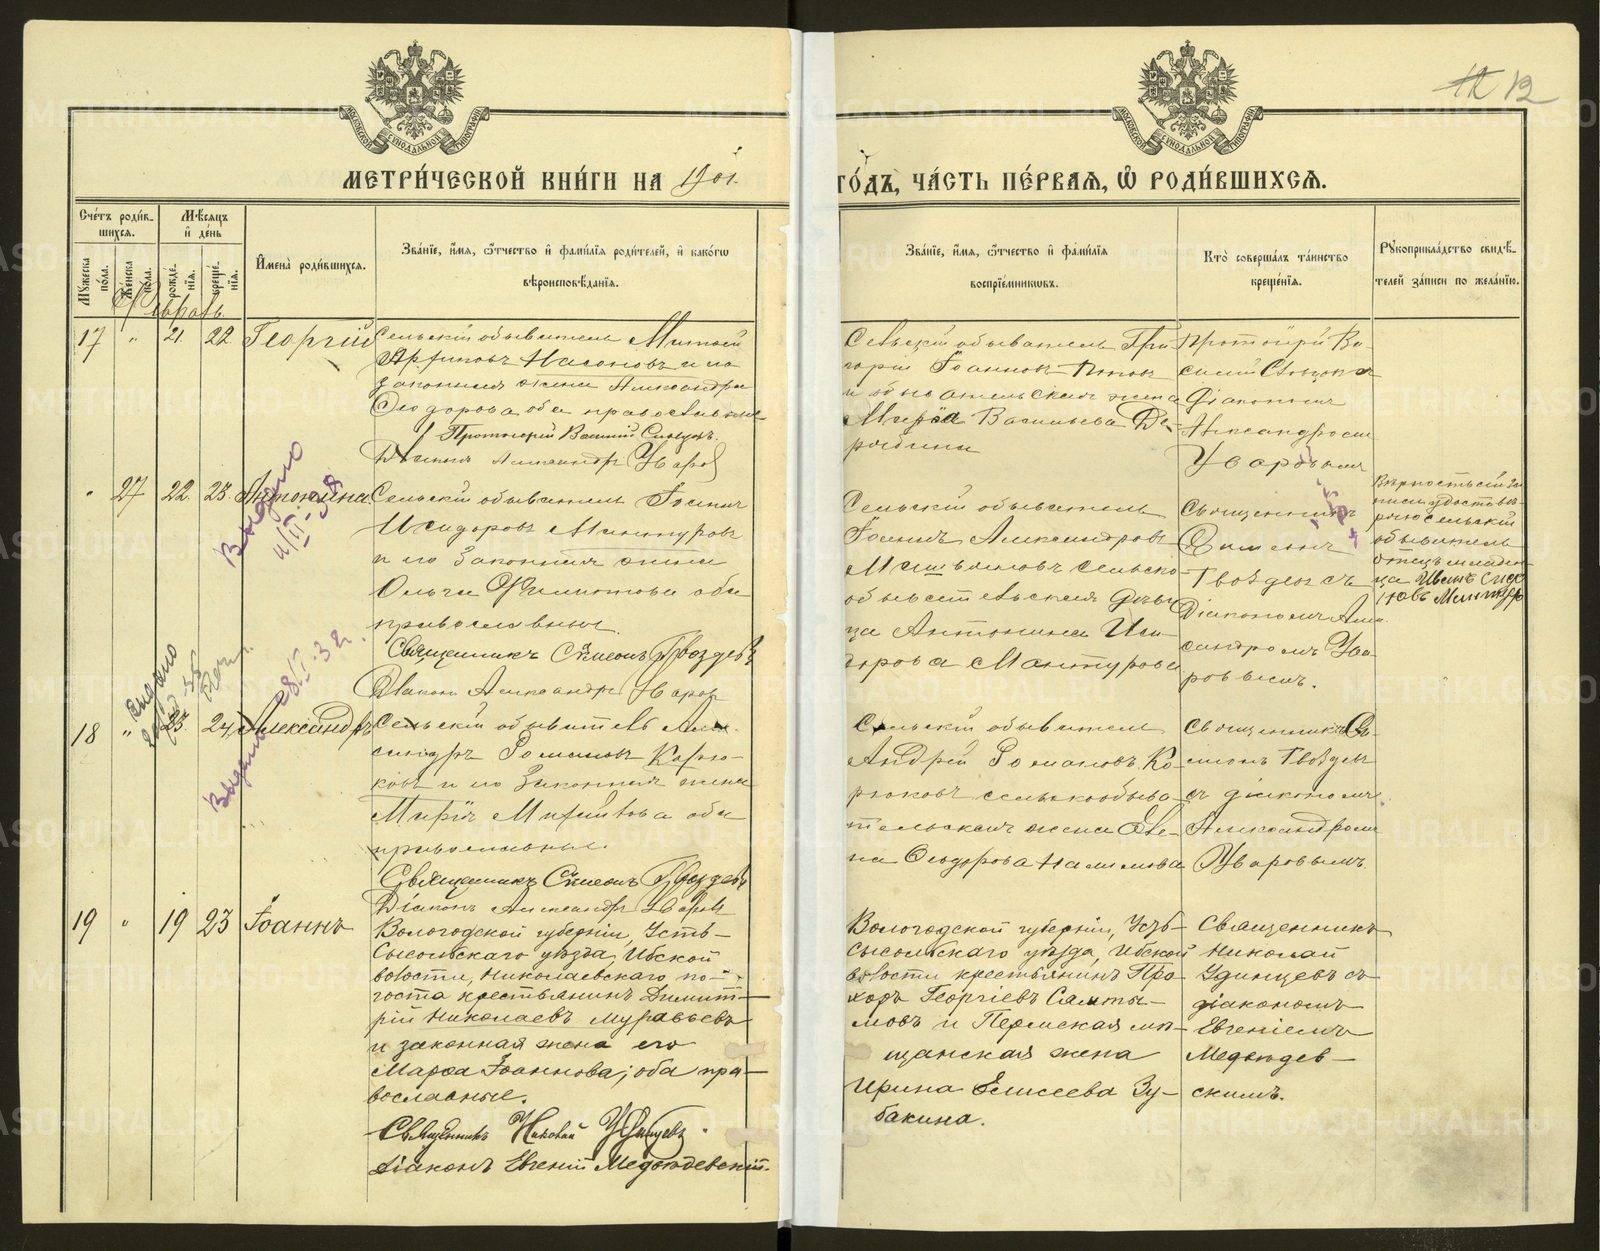 12
МЕТРИ́ЧЕСКОЙ КНИ́ГИ НА 1901
ГО́ДЪ, ЧА́СТЬ ПЕ́РВАЯ, Ѿ РОДИ́ВШИХСЯ.
Сче́тъ роди́в-
шихся.
Мѣ́сяцъ
и҆ де́нь
Му́жеска
по́ла.
Же́нска
по́ла.
рожде́-
нїя.
креще́-
нїя.
И҆мена̀ роди́вшихся.
Зва́нїе, и҆́мя, ѻ҆́тчество и҆ фами́лїя роди́телей, и҆ како́гѡ
вѣроисповѣ́данїя.
Зва́нїе, и҆́мя, ѻ҆́тчество и҆ фами́лїя
воспрїе́мниковъ.
Кто̀ соверша́лъ та́инство
креще́нїя.
Рꙋкоприкла́дство свидѣ́-
телей за́писи по жела́нїю.
Февраль
17 " 21. 22. Георгій
Сельскій обыватель
законная жена Александра
Ѳеодорова оба православные
Протоіерей Василій Словцовъ.
Діаконъ Александръ Уваровъ
Сельскій обыватель Гри-
горій Іоанновъ
Марія Васильева Де-
рябина
Протоіерей Ва-
силій Словцовъ съ
діакономъ
Александромъ
Уваровымъ
" 27 22. 23. Антонина
Выдано
Сельскій обыватель Іоаннъ
Исидоровъ Мантуровъ
и его законная жена
Ольга Филиппова оба
православные.
Священникъ Симеонъ Гвоздевъ
Діаконъ Александръ Уваровъ
Сельскій обыватель
Іоаннъ Александровъ
сельско-
обывательская дѣви-
ца Антонина Иси-
дорова Мантурова
Священникъ
Симеонъ
Гвоздевъ съ
Діакономъ Але-
ксандромъ Ува-
ровымъ.
Вѣрность сей за-
писи удостовѣ-
ряю сельскій
обыватель
отецъ младен-
ца Иванъ Сидо-
ровъ Мантуровъ
18 " 23. 24 Александръ
Выдано
Сельскій обыватель Але-
ксандръ Романовъ Карю-
ковъ и его законная жена
Марія оба
православные.
Священникъ Симеонъ Гвоздевъ
Діаконъ Александръ Уваровъ
Сельскій обыватель
Андрей Романовъ Ка-
рюковъ сельскообыва-
тельская жена Еле-
на Ѳеодорова Налимова
Священникъ Си-
меонъ Гвоздевъ
съ діакономъ
Александромъ
Уваровымъ
19 " 19 23 Іоаннъ
Вологодской губерніи, Усть-
Сысольскаго уѣзда, Ибской
волости, Николаевскаго по-
госта крестьянинъ Димит-
рій Николаевъ Муравьевъ
и законная жена его
Марѳа Іоаннова; оба пра-
вославные.
Священникъ Николай Удинцевъ.
Діаконъ Евгеній Медвѣдевскій.
Вологодской губерніи, Усть-
Сысольскаго уѣзда, Ибской
волости крестьянинъ Про-
хоръ Георгіевъ
и Пермская мѣ-
щанская жена
Ирина Елисеева Зу-
бакина.
Священникъ
Николай
Удинцевъ съ
діакономъ
Евгеніемъ
Медвѣдев-
скимъ.